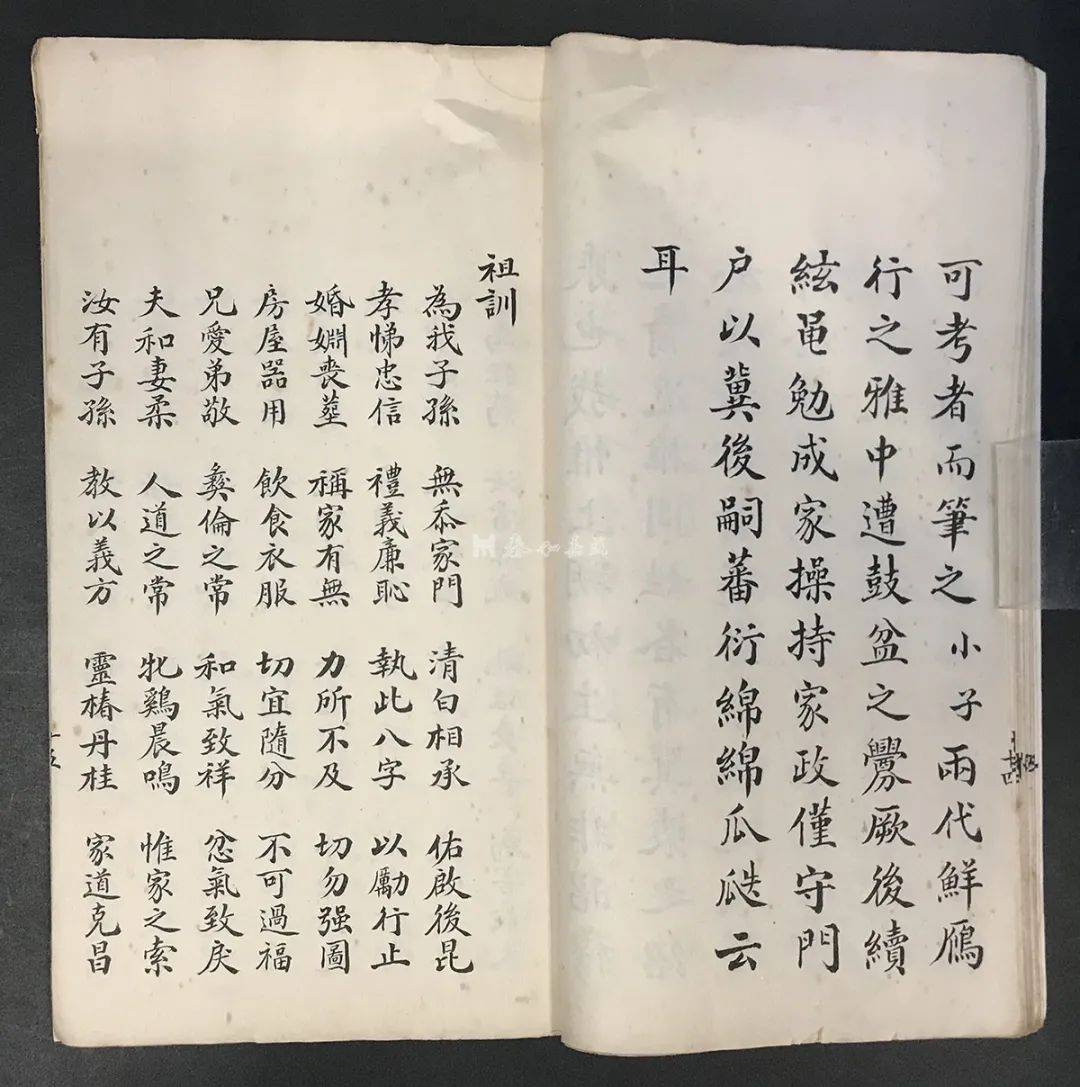 可考者而筆之小子兩代鮮鴈
行之雅中遭鼓盆之釁厥後續
絃黽勉成家操持家政僅守門
户以冀後嗣蕃衍綿綿瓜瓞云
耳
祖訓
為我子孫 無忝家門 清白相承 佑啟後昆
孝悌忠信 禮義廉恥 執此八字 以勵行止
婚姻喪葬 稱家有無 力所不及 切勿强圖
房屋器用 飲食衣服 切宜隨分 不可過福
兄愛弟敬 彝倫之常 和氣致祥 忿氣致戾
夫和妻柔 人道之常 牝鷄晨鳴 惟家之索
汝有子孫 教以義方 靈椿丹桂 家道克昌
十五